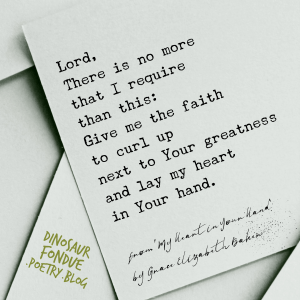 Lord,
There is no more
that I require
than this:
Give me the faith
to curl up
next to Your greatness
and lay my heart
in Your hand.
from "My Heart in Your Hand"
by Grace Elizabeth Bahin
DINOSAUR
FONDUE
.POETRY.BLOG